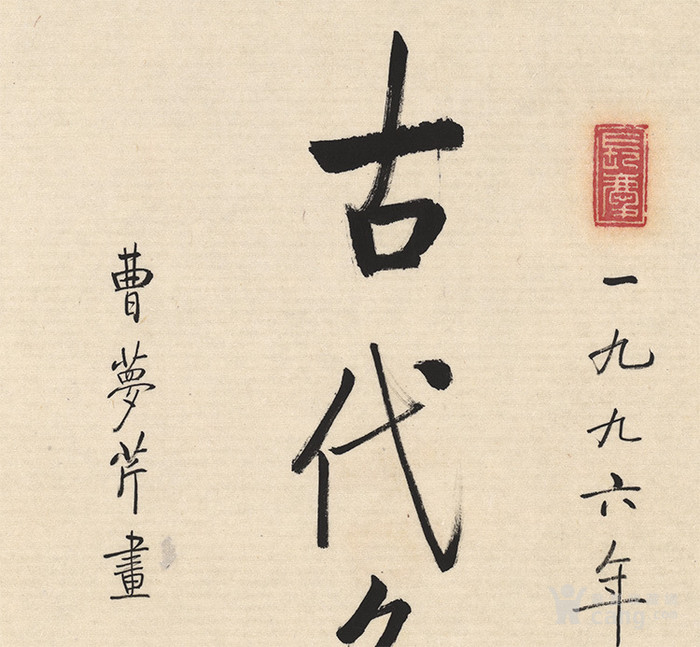 一九九六年
古代
曹夢芹畫